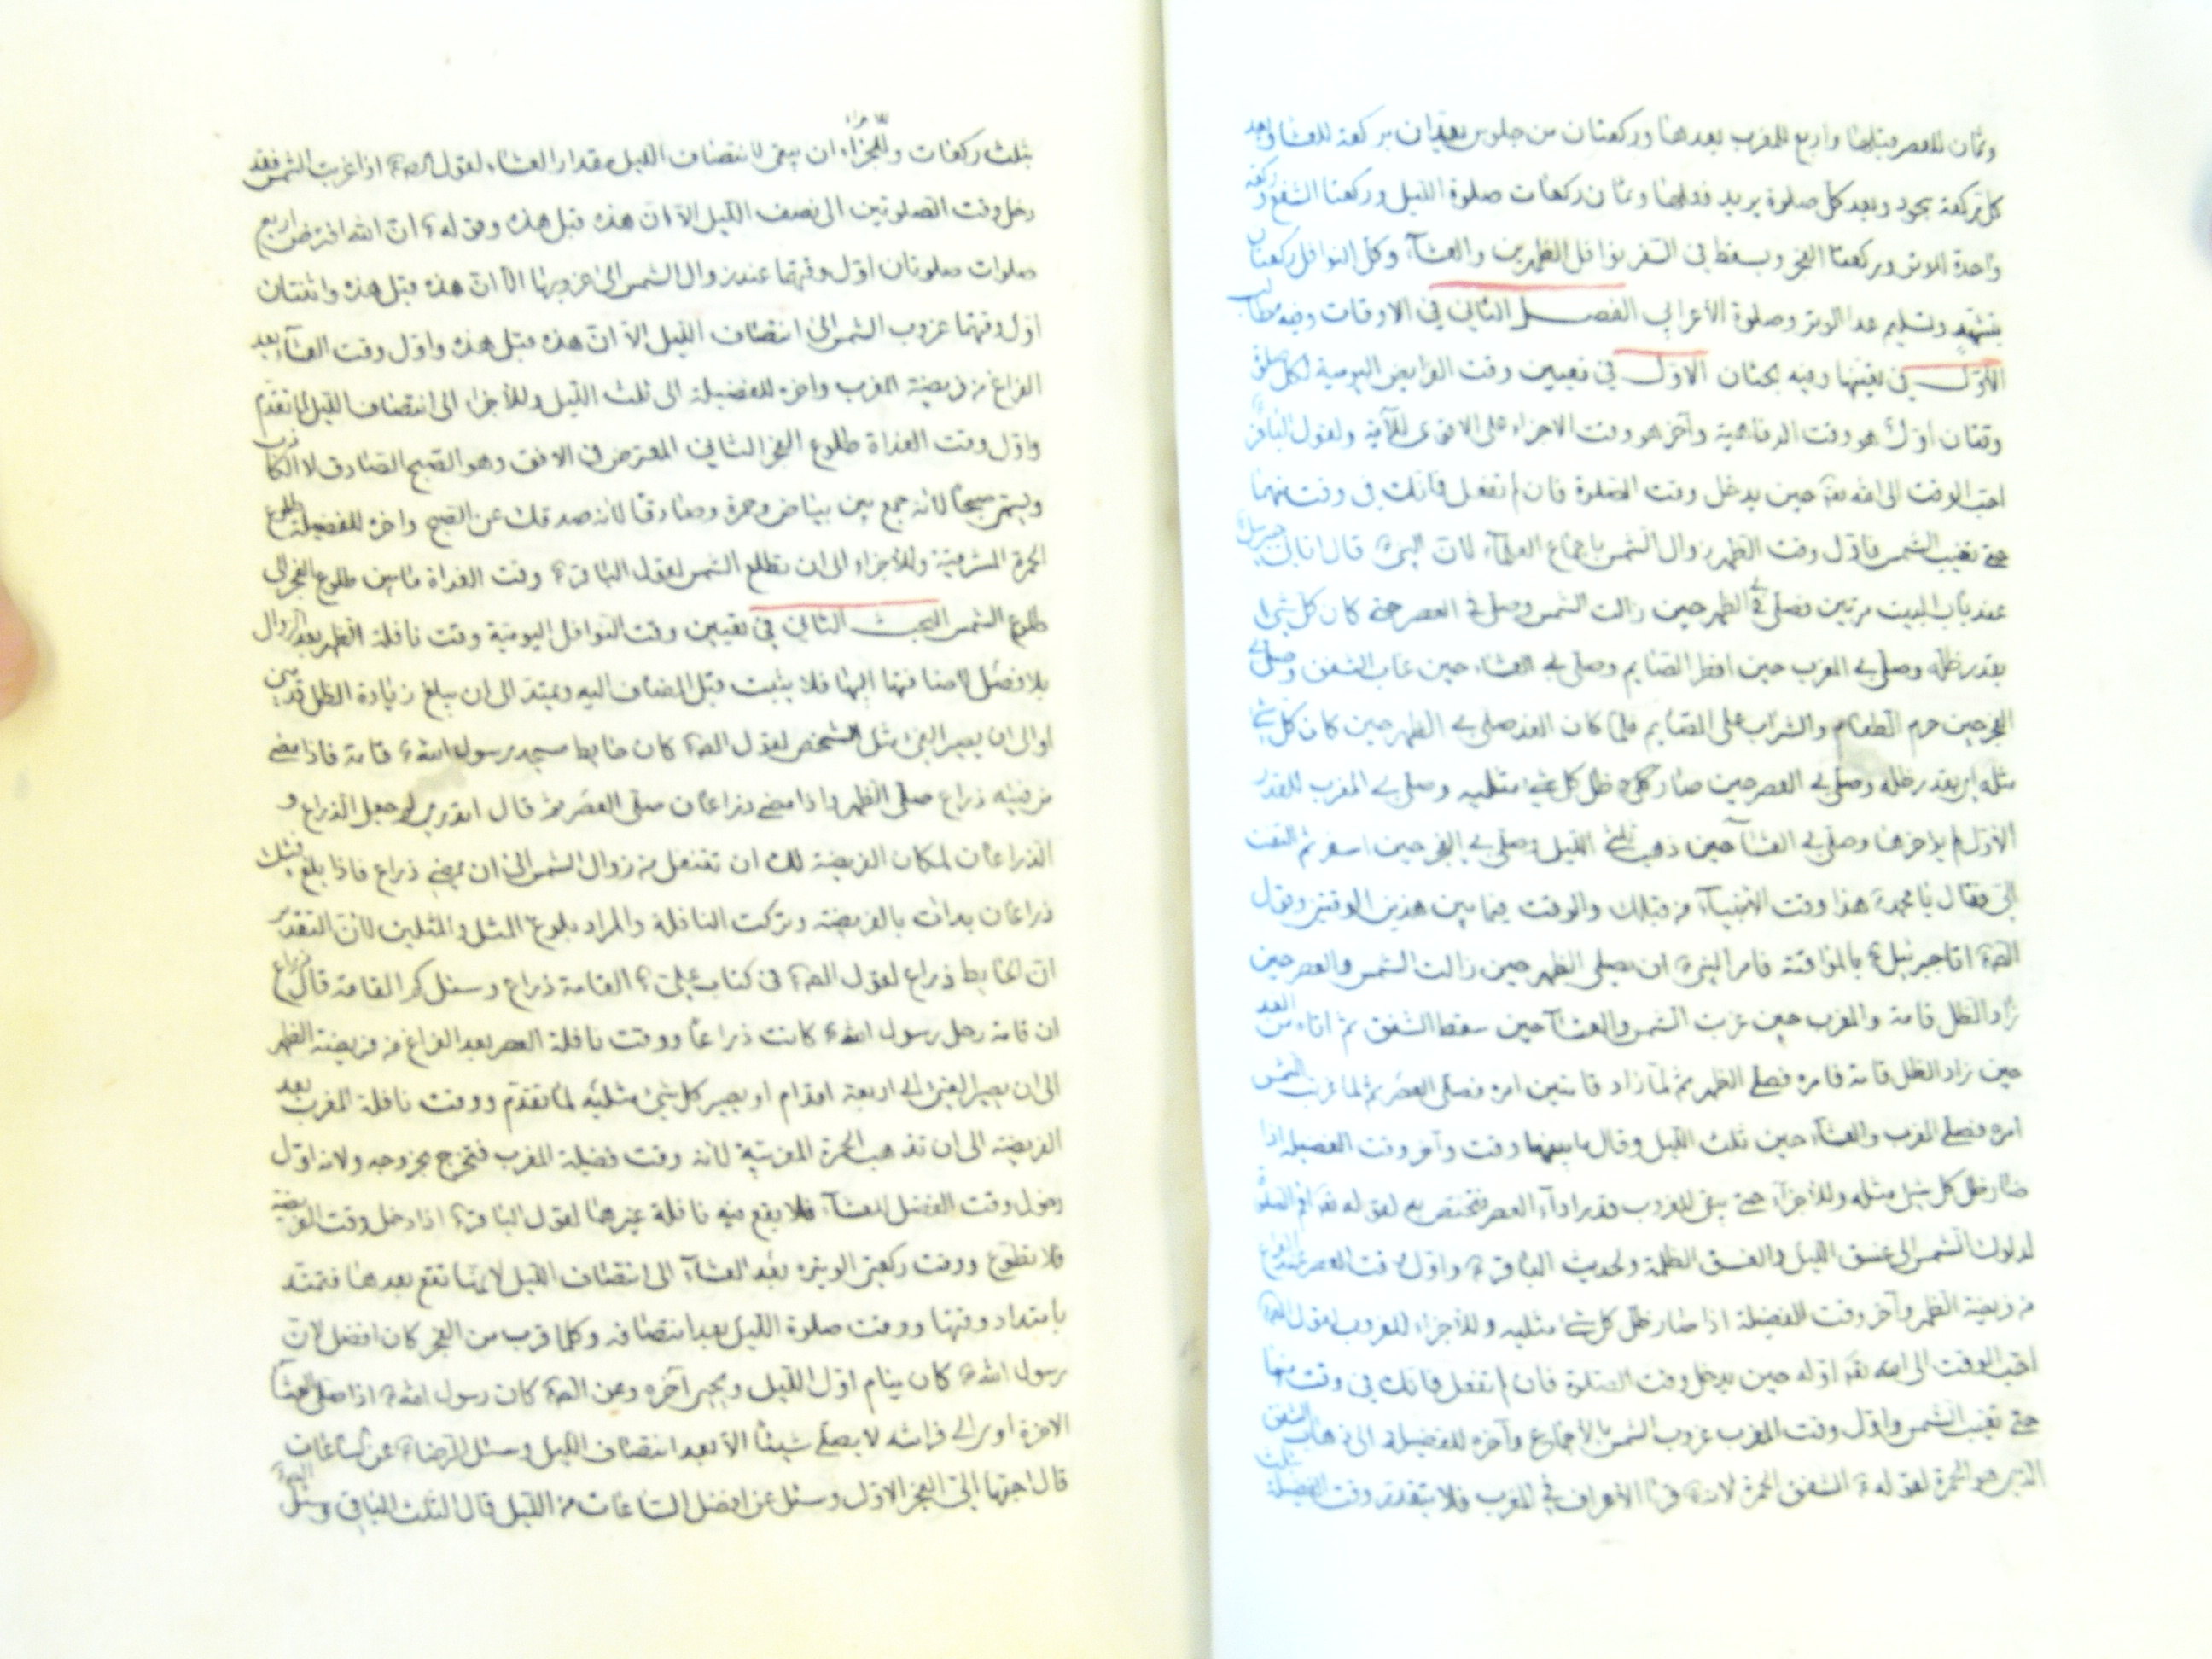 وثمان للعصر قبلها واربع للمغرب بعدها وركعتان من جلوس يعدان بركعة للعشاء وبعد
كل ركعة بجود وبعد كل صلوة يريد فعلها وثمان ركعات صلوة الليل وركعتا الشفع وركعة
واحدة الوتر وركعتا الفجر ويسقط في السفر نوافل الظهرين والعشاء وكل النوافل ركعتان
بتشهد وتسليم عدا الوتر وصلوة الأعرابي الفصل الثاني في الاوقات وفيه مطالب
الأول في تعيينها وفيه بحثان الاول في تعيين وقت الفرايض اليومية لكل صلوة
وقتان اول هو وقت الرفاهية وآخر هو وقت الاجزاء على الاقوى للآية ولقول الباقر
احب الوقت الى الله تعه حين يدخل وقت الصلوة فان لم تفعل فانك في وقت منهما
حتى تغيب الشمس فاول وقت الظهر زوال الشمس باجماع العلماء لان النبي قال اتاني جبرئيل
عند باب البيت مرتين فصلى بي الظهر حين زالت الشمس وصلى بي العصر حين كان كل شيء
بقدر ظله وصلى بي المغرب حين افطر الصايم وصلى بي العشاء حين غاب الشفق وصلى بي
الفجر حين حرم الطعام والشراب على الصايم فلما كان الغد صلى بي الظهر حين كان كل شيء
مثله اي بقدر ظله وصلى بي العصر حين صار ظل كل شيء مثليه وصلى بي المغرب للقدر
الاول لم يؤخرها وصلى بي العشاء حين ذهب ثلث الليل وصلى بي الفجر حين اسفر ثم التفت
الي فقال يا محمد هذا وقت الانبياء من قبلك والوقت فيما بين هذين الوقتين وقول
الصه اتا جبرئيل بالمواقيت فامر النبي ان يصلي الظهر حين زالت الشمس والعصر حين
زاد الظل قامة والمغرب حين غربت الشمس والعشاء حين سقط الشفق ثم اتاه من الغد
حين زاد الظل قامة فامره فصلى الظهر ثم لما زاد قامتين امره فصلى العصر ثم لما غربت الشمس
امره فصلى المغرب والعشاء حين ثلث الليل وقال ما بينهما وقت وآخر وقت الفضيلة اذا
صار ظل كل شيء مثله وللأجزاء حتى يبقى للغروب قدر اداء العصر فتختص به لقوله تعه اقم الصلوة
لدلوك الشمس الى غسق الليل والغسق الظلمة ولحديث الباقر واول وقت العصر عند الفراغ
من فريضة الظهر وآخر وقت الفضيلة اذا صار ظل كل شيء مثليه وللأجزاء للغروب لقول الصه
احب الوقت الى الله تعه اوله حين يدخل وقت الصلوة فان لم تفعل فانك في وقت منهما
حتى تغيب الشمس واول وقت المغرب غروب الشمس بالاجماع وآخره للفضيلة الى ذهاب الشفق
الذي هو الحمرة لقوله الشفق الحمرة لانه قرأ الأعراف في المغرب فلا يتقدر وقت الفضيلة
بثلث ركعات وللاجزاء ان يبقى لانتصاف الليل مقدار العشاء لقول الصه اذا غربت الشمس فقد
دخل وقت الصلوتين الى نصف الليل الا ان هذه قبل هذه وقوله ان الله افترض اربع
صلوات صلوتان اول وقتهما عند زوال الشمس الى غروبها الا ان هذه قبل هذه واثنتان
اول وقتهما غروب الشمس الى انتصاف الليل الا ان هذه قبل هذه واول وقت العشاء بعد
الفراغ من فريضة المغرب واخره للفضيلة الى ثلث الليل وللأجزاء الى انتصاف الليل لما تقدم
واول وقت الغداة طلوع الفجر الثاني المعترض في الافق وهو الصبح الصادق لا الكاذب
ويسمى صبحا لانه جمع بين بياض وحمرة وصادقا لانه صدقك عن الصبح واخره للفضيلة طلوع
الحمرة المشرقية وللأجزاء الى ان تطلع الشمس لقول الباقر وقت الغداة مابين طلوع الفجر الى
طلوع الشمس البحث الثاني في تعيين وقت النوافل اليومية وقت نافلة الظهر بعد الزوال
بلا فصل لاضافتها اليها فلا يثبت قبل المضاف اليه ويمتد الى ان يبلغ زيادة الظل قدمين
او الى ان يصير الفيء مثل الشخص لقول الصه كان حايط مسجد رسول الله قامة فاذا مضى
من فيئه ذراع صلى الظهر واذا مضى ذراعان صلى العصر ثم قال اتدري لم جعل الذراع و
الذراعان لمكان الفريضة لك ان تتنفل من زوال الشمس الى ان يمضي ذراع فاذا بلغ فيئك
ذراعان بدأت بالفريضة وتركت النافلة والمراد بلوغ المثل والمثلين لان التقدير
ان الحايط ذراع لقول الصه في كتاب علي القامة ذراع وسئل كم القامة قال ذراع
ان قامة رحل رسول الله كانت ذراعا ووقت نافلة العصر بعد الفراغ من فريضة الظهر
الى ان يصير الفيء الى اربعة اقدام او يصير كل شيء مثليه لما تقدم ووقت نافلة المغرب بعد
الفريضة الى ان تذهب الحمرة المغربية لانه وقت فضيلة المغرب فتخرج بخروجه ولانه اول
دخول وقت الفضل للعشاء فلا يقع فيه نافلة غيرها لقول الباقر اذا دخل وقت الفريضة
فلا تطوع ووقت ركعتي الوتيرة بعد العشاء الى انتصاف الليل لانها تقع بعدها فتمتد
بامتداد وقتها ووقت صلوة الليل بعد انتصافه وكلما قرب من الفجر كان افضل لان
رسول الله كان ينام اول الليل ويحيي آخره وعن الصه كان رسول الله اذا صلى العشاء
الاخرة اوى الى فراشه لا يصلي شيئا الا بعد انتصاف الليل وسئل الرضا عن ساعات
قال احبها الي الفجر الاول وسئل عن افضل الساعات من الليل قال الثلث الباقي وسئل الصه